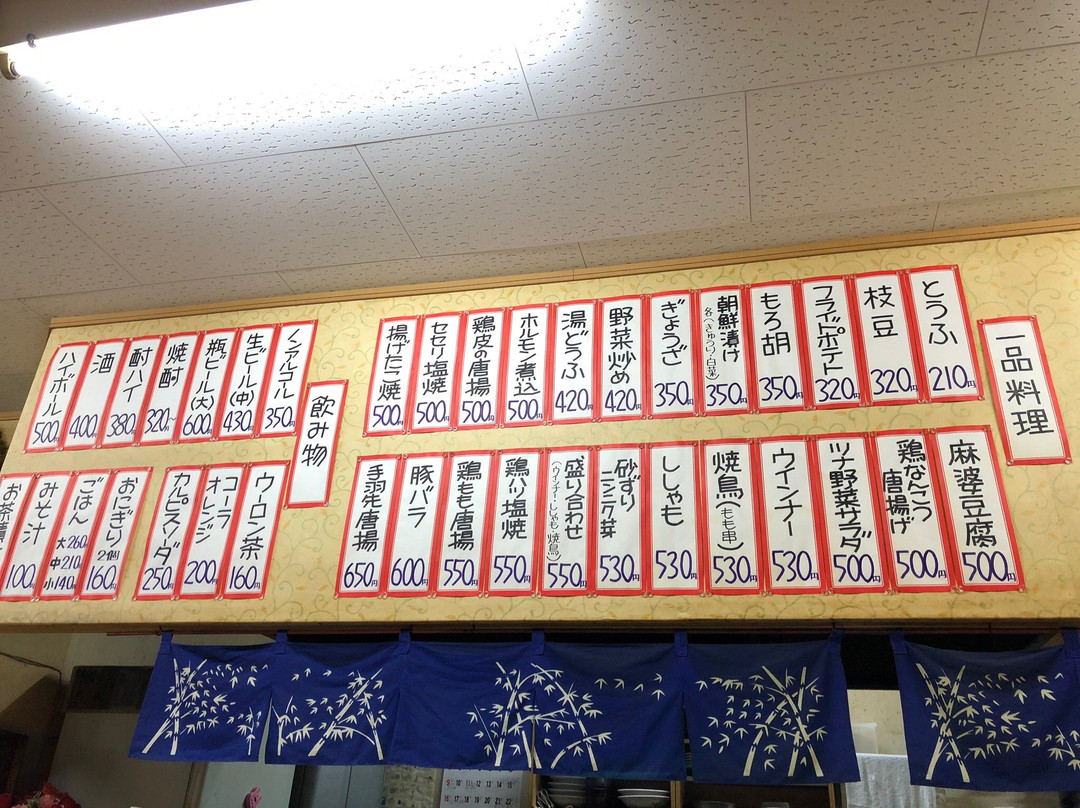 一品料理
とうふ
210円
枝豆
320円
フライドポテト
320円
もろ胡
350円
朝鮮漬け
各(きゅうり・白菜)
350円
ぎょうざ
350円
野菜炒め
420円
湯どうふ
420円
ホルモン煮込
500円
鶏皮の唐揚
500円
セセリ塩焼
500円
揚げだこ焼
500円
麻婆豆腐
500円
鶏なんこつ
唐揚げ
500円
ツナ野菜サラダ
500円
ウインナー
530円
焼鳥(もも串)
530円
ししゃも
530円
砂ずり
ニンニク芽
530円
盛り合わせ
(ウインナー・ししゃも・焼鳥)
550円
鶏ハツ塩焼
550円
鶏もも唐揚
550円
豚バラ
600円
手羽先唐揚
650円
飲み物
ノンアルコール
350円
生ビール(中)
430円
瓶ビール(大)
600円
焼酎
320~
酎ハイ
380円
酒
400円
ハイボール
500円
ウーロン茶
160円
コーラ
オレンジ
200円
カルピスソーダ
250円
おにぎり
2個
160円
ごはん
大260円
中210円
小140円
みそ汁
100円
お茶漬
9 10 11 12 13 14 15
16 17 18 19 20 21 22